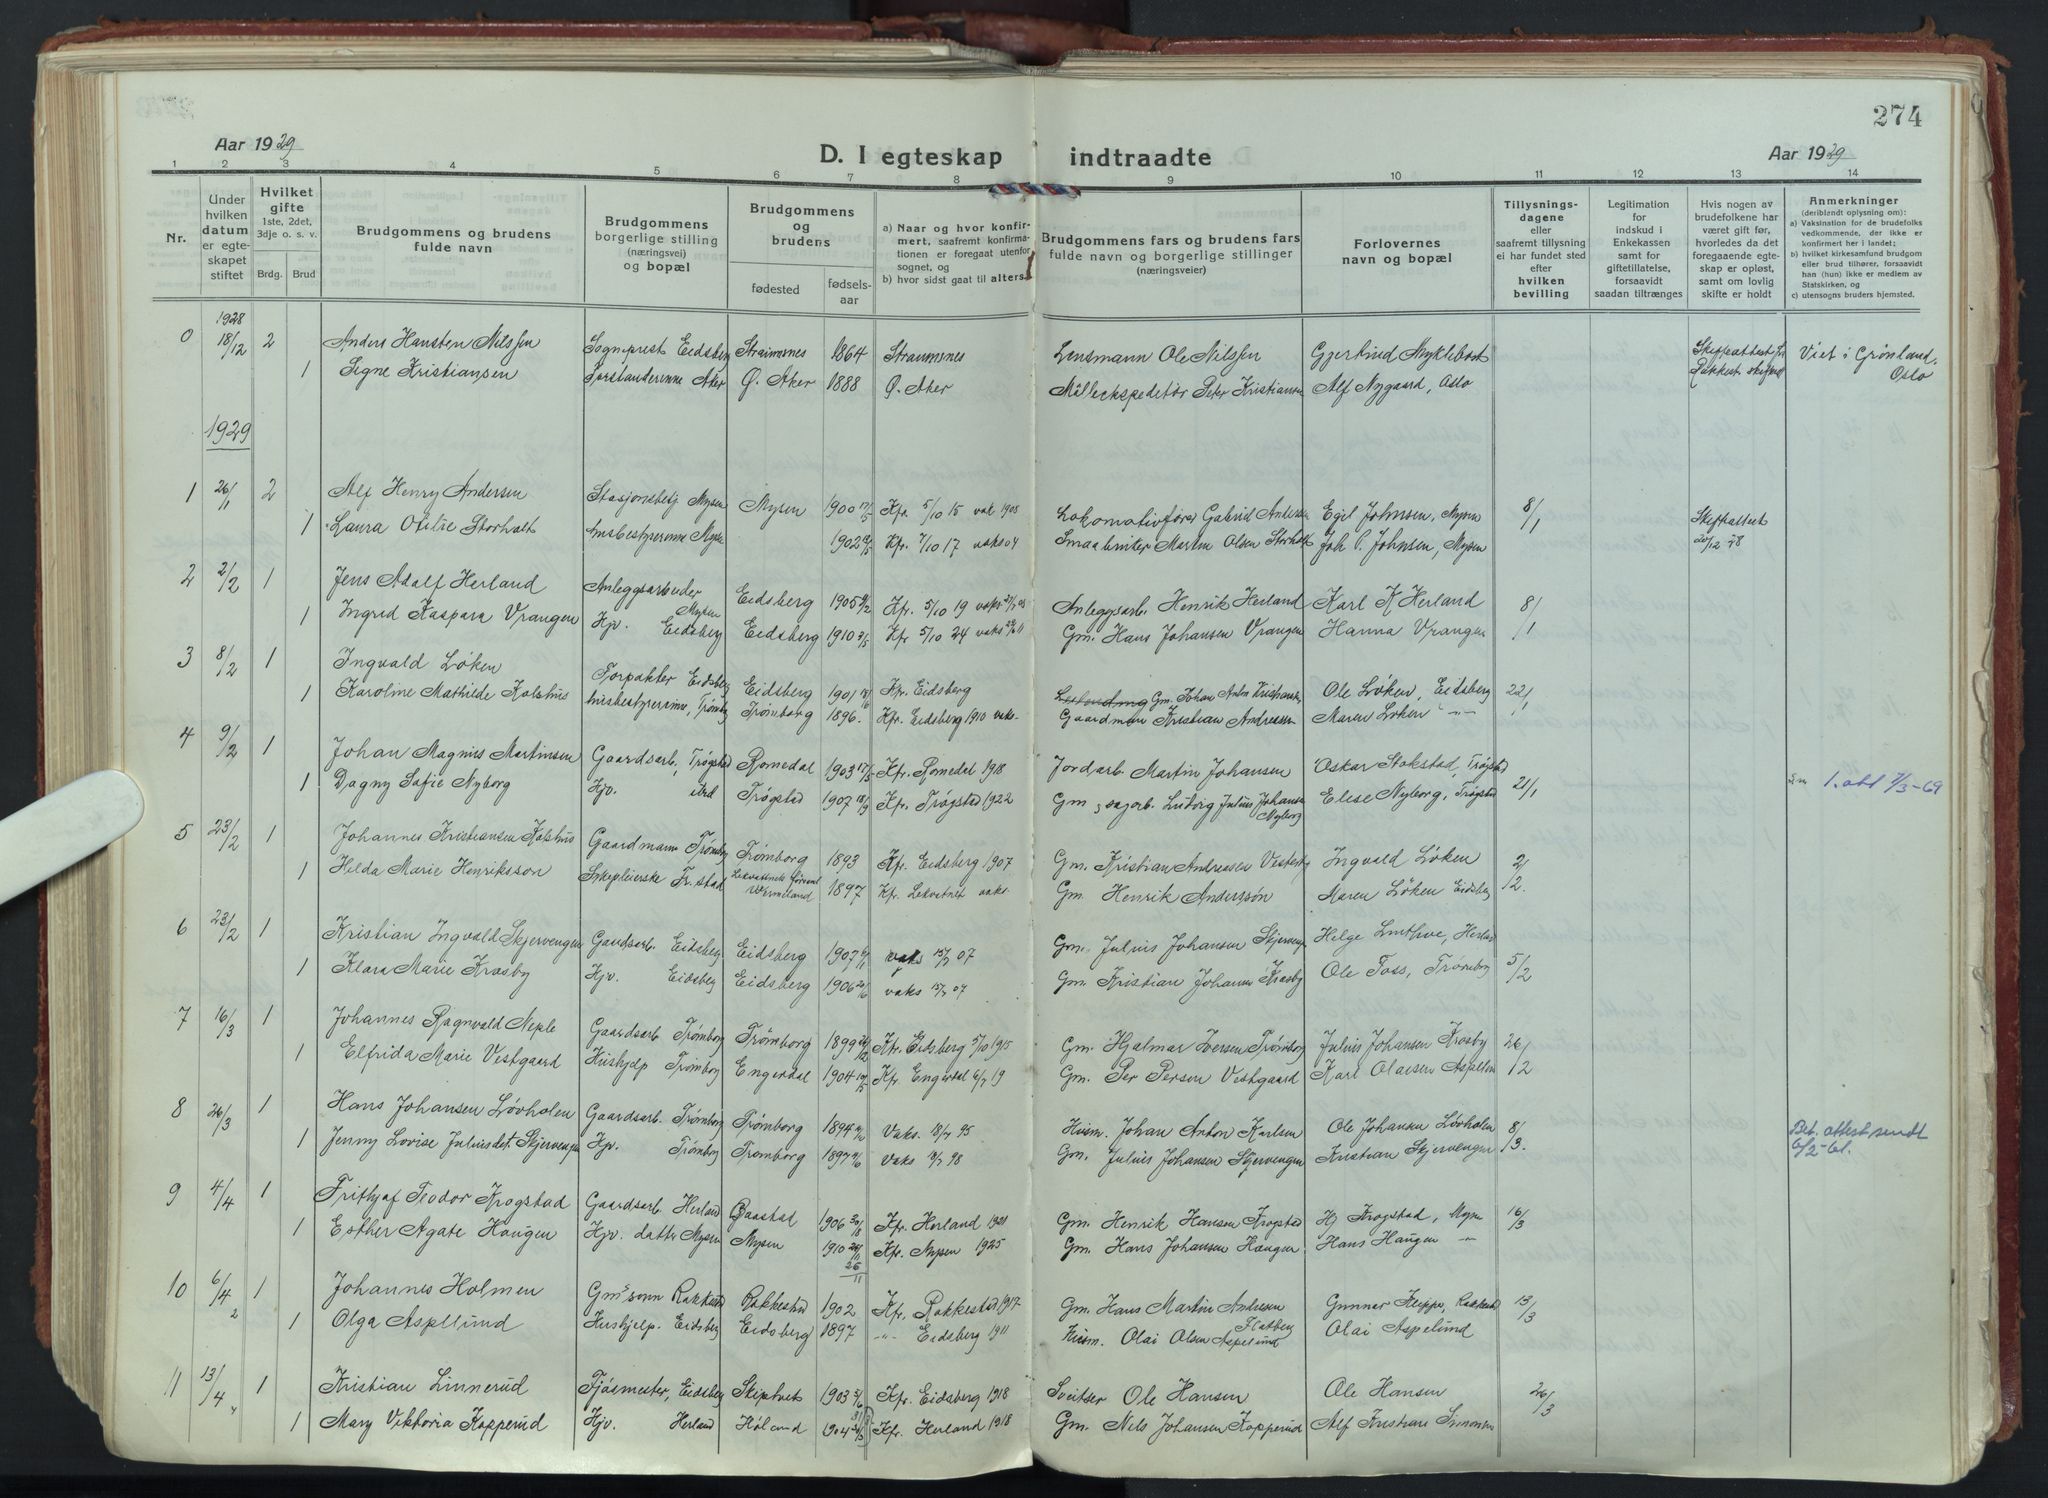 274
Aar 1929
D. I egteskap indtraadte
Aar 1929
1 2 3 4 5 6 7 8 9 10 11 12 13 14
Nr.
Under hvilken datum er egteskapet stiftet
Hvilket gifte 1ste, 2det, 3dje o. s. v.
Brdg. Brud
Brudgommens og brudens fulde navn
Brudgommens borgerlige stilling (næringsvei) og bopæl
Brudgommens og brudens
fødested
fødselsaar
a) Naar og hvor konfirmert, saafremt konfirmationen er foregaat utenfor sognet, og
b) hvor sidst gaat til alters.
Brudgommens fars og brudens fars fulde navn og borgerlige stillinger (næringsveier)
Forlovernes navn og bopæl
Tillysningsdagene eller saafremt tillysning ei har fundet sted efter hvilken bevilling
Legitimation for indskud i Enkekassen samt for giftetillatelse, forsaavidt saadan tiltrænges
Hvis nogen av brudefolkene har været gift før, hvorledes da det foregaaende egteskap er opløst, samt om lovlig skifte er holdt
Anmerkninger
(deriblandt oplysning om):
a) Vaksination for de brudefolks vedkommende, der ikke er konfirmert her i landet;
b) hvilket kirkesamfund brudgom eller brud tilhører, forsaavidt han (hun) ikke er medlem av Statskirken, og
c) utensogns bruders hjemsted.
0 1928 18/12 2 Anders Hansten Nilssen Sogneprest Eidsberg Straumsnes 1864 Straumsnes Lensmann Ole Nilssen Gjertrud Myklebost Skifteattest fr. Rakkest Viet i Grønland, Oslo
1 Signe Kristiansen Forstanderinne Aker Ø. Aker 1888 Ø. Aker Peter Kristiansen Alf Nygaard, Oslo
1929
1 26/1 2 Alf Henry Andersen Stasjonsbetj Mysen Mysen 1900 17/5 Kfr. 5/10 15 vak 1908 Lokomotivfører Gabriel Andersen Egil Johnsen, Mysen 8/1 Skifteattest 20/12 28
1 Laura Otilie Storholt Husbestyrerinne Mysen 1902 Kfr. 7/10 17 vaks 04 Smaabruker Martin Olsen Storholt Joh P. Johnsen, Mysen
2 2/2 1 Jens Adolf Herland Anleggsarbeider Mysen Eidsberg 1905 Kfr. 5/10 19 vaks Anleggsarb. Henrik Herland Karl K Herland 8/1
1 Ingrid Kaspara Vrangen Hjv. Eidsberg Eidsberg 1910 3/5 Kfr 5/10 24 vaks Gm. Hans Johansen Vrangen Hanna Vrangen
3 8/2 1 Ingvald Løken Forpakter Eidsberg Eidsberg 1901 Kfr. Eidsberg Gm. Johan Anton Kristiansen Ole Løken, Eidsberg 22/1
1 Karoline Mathilde Kolshus Husbestyrerinne, Trømborg Trømborg 1896. Kfr. Eidsberg 1910 vaks. Gaardman Kristian Andreassen Maren Løken -"-
4 9/2 1 Johan Magnus Martinsen Gaardsarb, Trøgstad Romedal 1903 17/5 Kfr. Romedal 1918 Jordarb. Martin Johansen Oskar Stokstad, Trøgstad 21/1
1 Dagny Sofie Nyborg Hjv. ibid Trøgstad 1907 18/9 Kfr. Trøgstad 1922 Gm, sagarb. Ludvig Julius Johansen Nyborg Elise Nyborg, Trøgstad 1. att 7/3-69
5 23/2 1 Johannes Kristiansen Kolshus Gaardmann Trømborg Trømborg 1893 Kfr. Eidsberg 1907 Gm. Kristian Andreasen Vesterby Ingvald Løken 2/2.
1 Helda Marie Henriksson Sykepleierske Fr.stad Värmeland 1897 Kfr. Lekvatnet vaks. Gm. Henrik Anderssön Maren Løken Eidsberg
6 23/2 1 Kristian Ingvald Skjervengen Gaardsarb. Eidsberg Eidsberg 1907 vaks 15/7 07 Gm. Julius Johansen Skjervengen Helge Linthoe, Herland 5/2
1 Klara Marie Krosby Hjv. Eidsberg Eidsberg 1906 vaks 15/7 07 Gm. Kristian Johansen Krosby Ole Foss, Trømborg
7 16/3 1 Johannes Ragnvald Neple Gaardsarb Trømborg Trømborg 1899 Kfr. Eidsberg 5/10 1915 Gm. Hjalmar Iversen Trømborg Julius Johansen Krosby 26/2
1 Elfrida Marie Vestgaard Hushjelp Trømborg Engerdal 1904 Kfr. Engerdal 6/7 19 Gm. Per Persen Vestgaard Karl Olaesen Aspelund
8 26/3 1 Hans Johansen Løvholen Gaardsarb. Trømborg Trømborg 1894 Vaks. 18/7 95 Husm. Johan Anton Karlsen Ole Johansen Løvholen 8/3.
1 Jenny Lovise Juliusdet. Skjervengen Hjv. Trømborg Trømborg 1897 Vaks 98 Gm. Julius Johansen Skjervengen Kristian Skjervengen Beb. attest sendt 6/2-61.
9 4/4 1 Frithjof Teodor Krogstad Gaardsarb Herland Baastad 1906 30/8 Kfr. Herland 1921 Gm. Henrik Hansen Krogstad Hj Krogstad, Mysen 16/3
1 Esther Agate Haugen Hjv. datter Mysen Mysen 1910 26/11 Kfr. Mysen 1925 Gm. Hans Johansen Haugen Hans Haugen -"-
10 6/4 1 Johannes Holmen Gm's sønn Rakkestad Rakkestad 1902 Kfr. Rakkestad 1917. Gm. Hans Martin Andresen Flatberg Gunnar Kleppe, Rakkestad 13/3
1 Olga Aspelund Hushjelp. Eidsberg Eidsberg 1897 -"- Eidsberg 1911 Husm. Olai Olsen Aspelund Olai Aspelund
11 13/4 1 Kristian Linnerud Fjøsmester, Eidsberg Skiptvet 1903 Kfr. Eidsberg 1918 Sveitser Ole Hansen Ole Hansen 26/3
1 Mary Viktoria Kopperud Hjv. Herland Høland 1904 Kfr. Herland 1918 Gm. Nils Johansen Kopperud Alf Kristian Simonsen